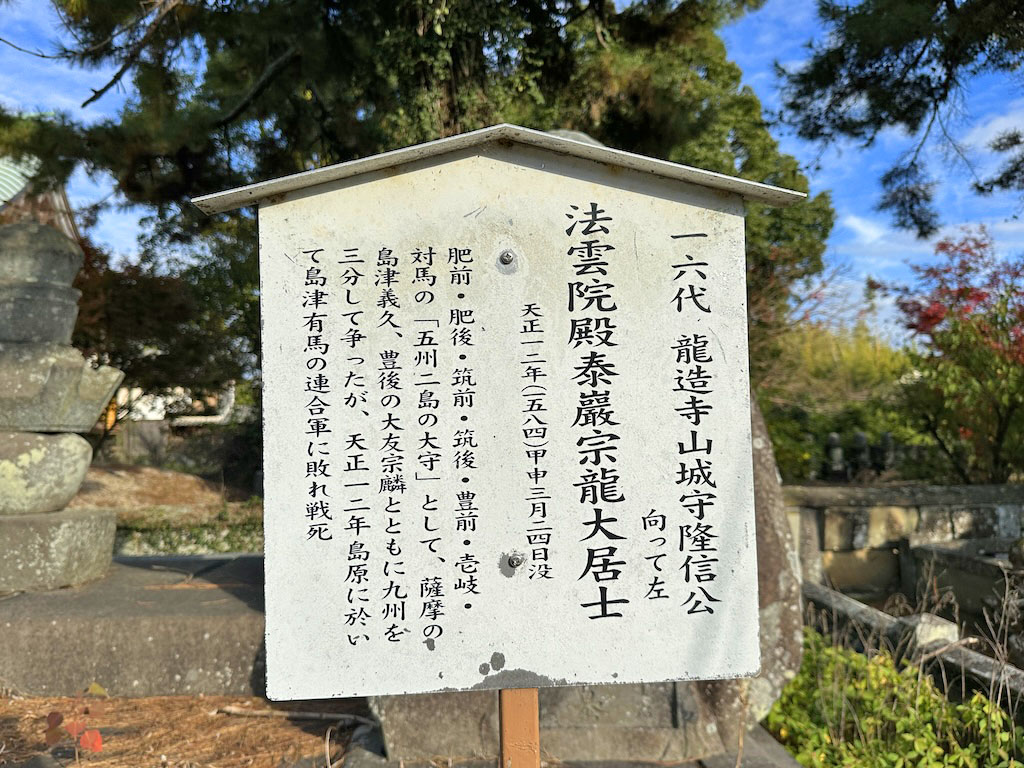 一六代　龍造寺山城守隆信公
向って左
法雲院殿泰巖宗龍大居士
天正一二年(一五八四)甲申三月二四日没
肥前・肥後・筑前・筑後・豊前・壱岐・
対馬の「五州二島の大守」として、薩摩の
島津義久、豊後の大友宗麟とともに九州を
三分して争ったが、天正一二年島原に於い
て島津有馬の連合軍に敗れ戦死